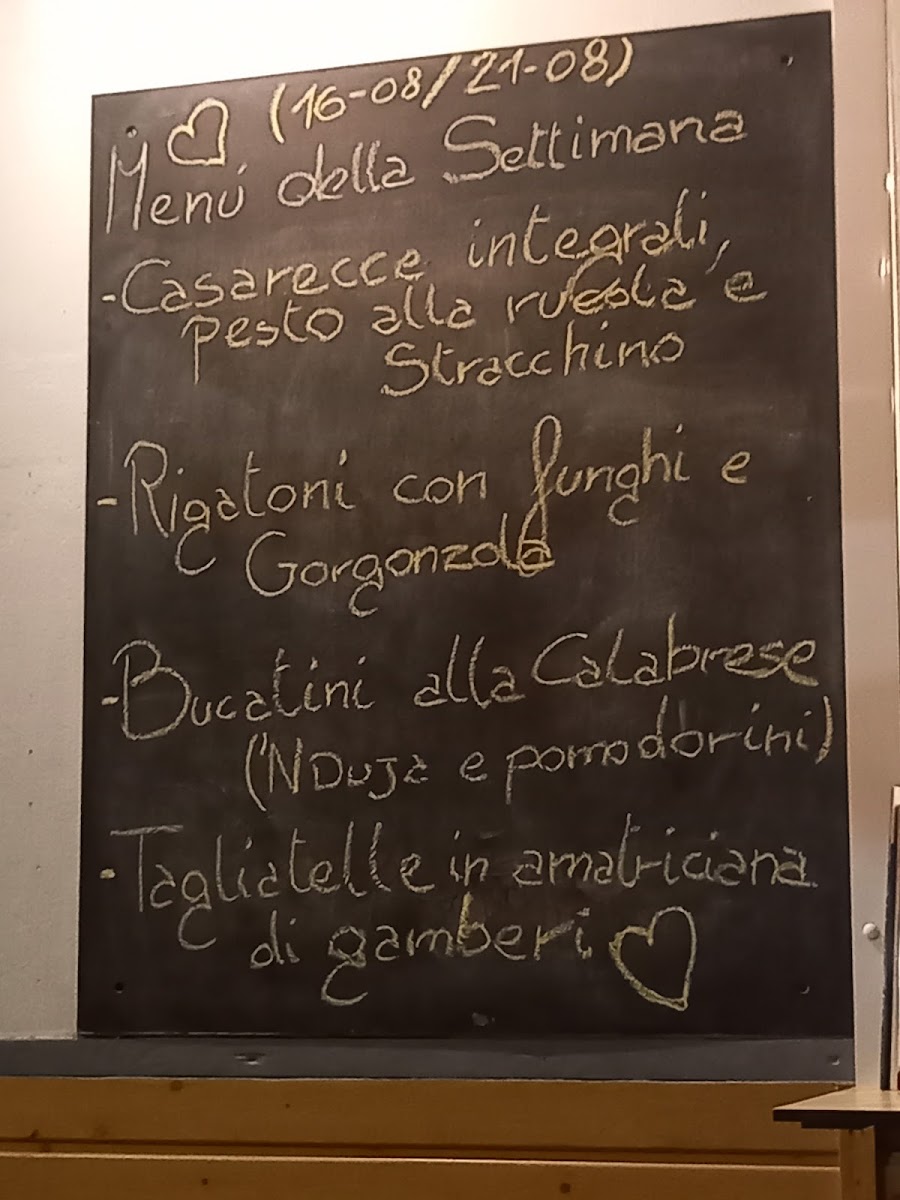 (16-08/21-08)
Menú della Settimana
-Casarecce integrali,
pesto alla rucola e
Stracchino
-Rigatoni con funghi e
Gorgonzola
-Bucatini alla Calabrese
('NDUJA e pomodorini)
-Tagliatelle in amatriciana
di gamberi